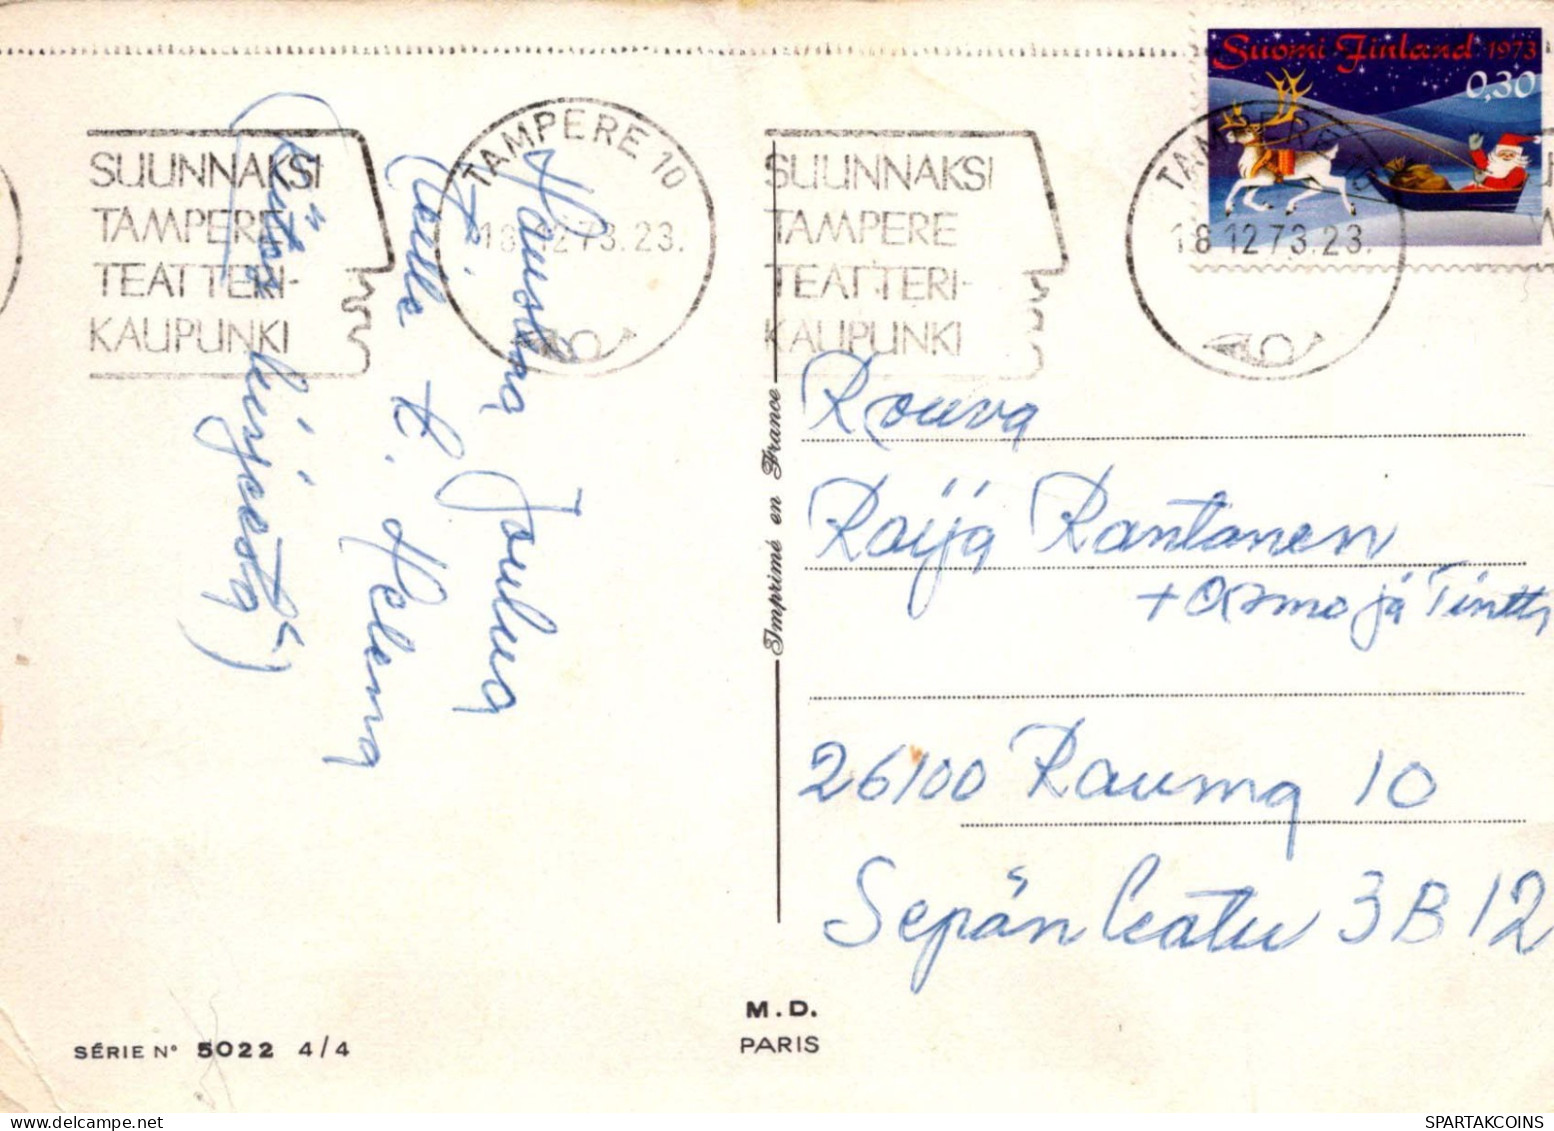 Suomi Finland 1973
0,30
TAMPERE 10
18.12.73.23.
SUUNNAKSI
TAMPERE
TEATTERI-
KAUPUNKI
TAMPERE 10
18.12.73.23.
SUUNNAKSI
TAMPERE
TEATTERI-
KAUPUNKI
Hauskaa Joulua
Teille t. Helena
(Kiitos kirjeestä)
Imprimé en France
Rouva
Raija Rantanen
+ Asmo ja
26100 Rauma 10
Sepänkatu 3 B 12
M.D.
PARIS
SÉRIE N° 5022 4/4
SPARTAKCOINS